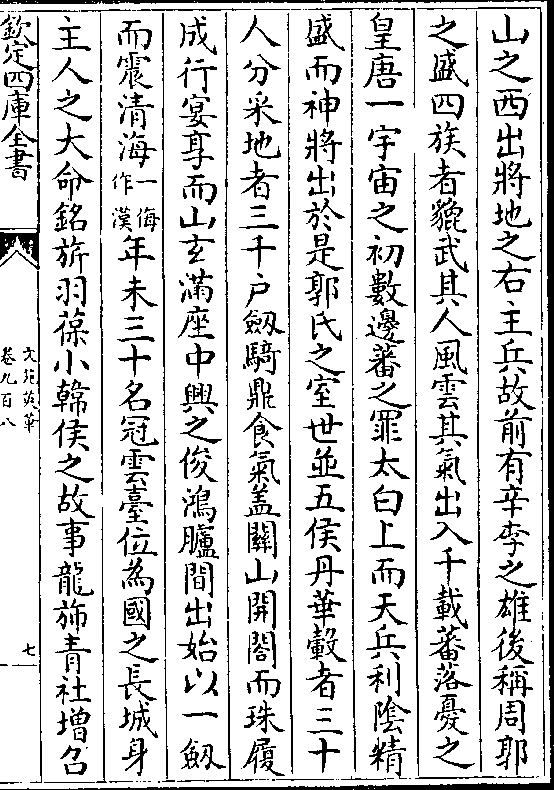 山之西出將地之右主兵故前有辛李之雄後稱周郭
之盛四族者貔武其人風雲其氣出入千載蕃落憂之
皇唐一宇宙之初數邊蕃之罪太白上而天兵利陰精
盛而神將出於是郭氏之室世並五侯丹華轂者三十
人分采地者三千戶劔騎鼎食氣盖關山開閤而珠履
成行宴享而山玄滿座中興之俊鴻臚間出始以一劔
而震清海一作海漢年未三十名冠雲臺位為國之長城身
主人之大命銘旂羽葆小韓侯之故事龍旆青社增召
欽定四庫全書
文苑英華
卷九百八
七